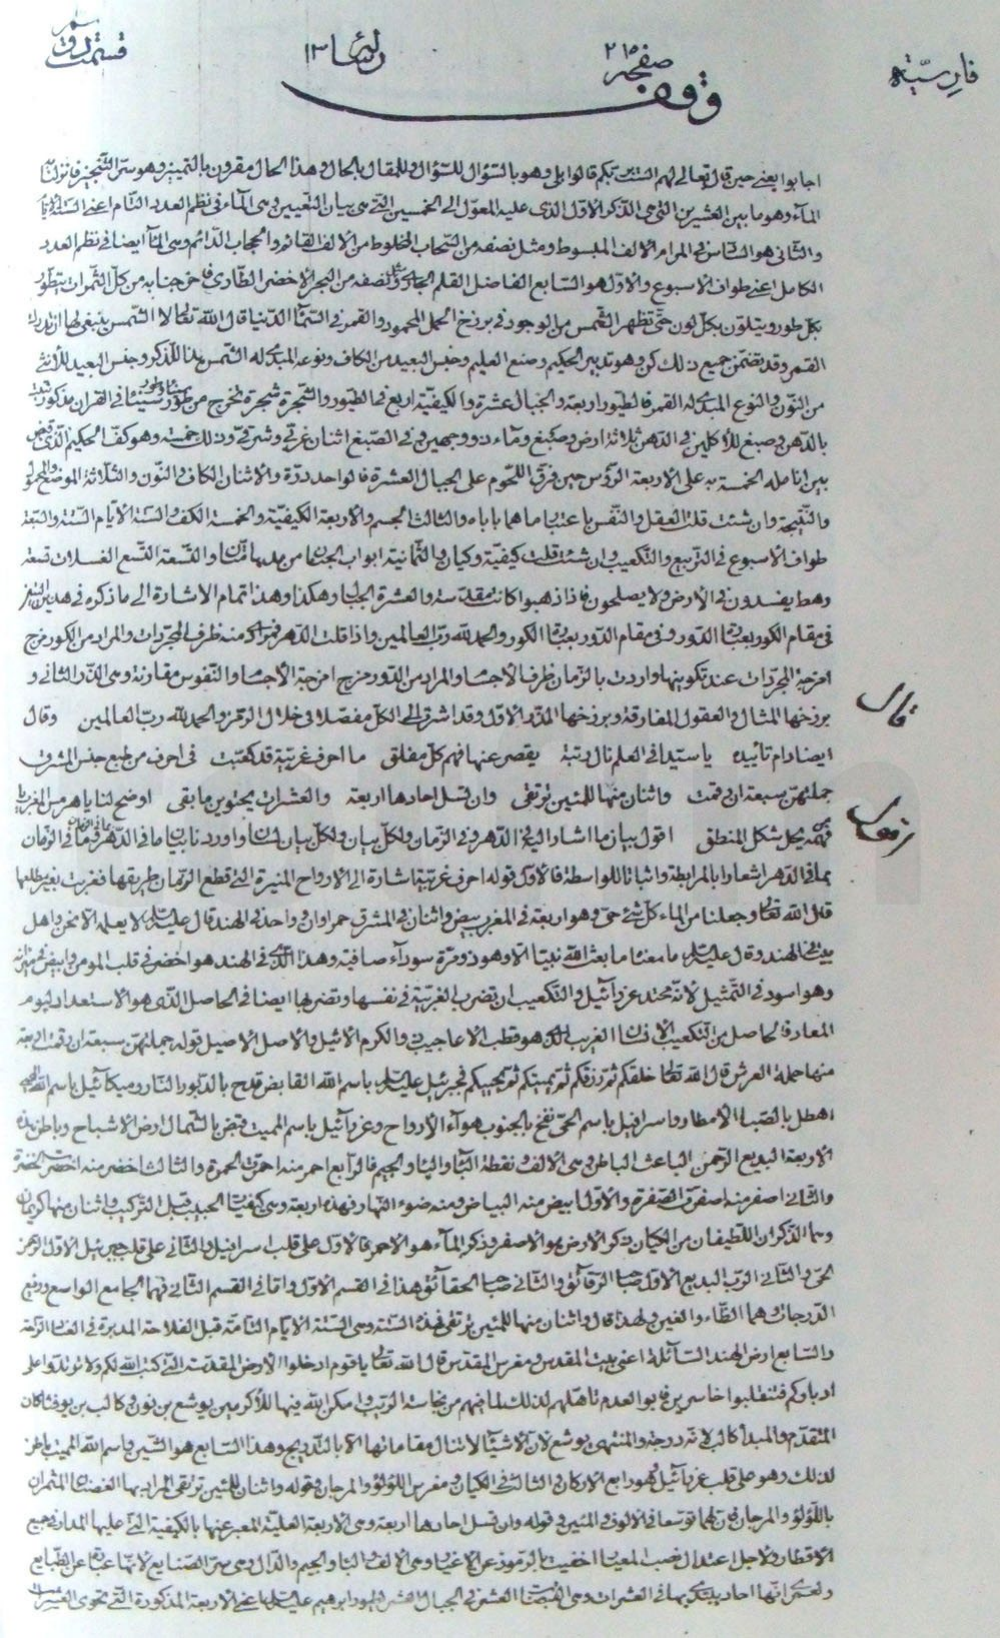 صفحه ٢١٥
فارسيّه
وقف
اجابوا يعنى حين قال تعالى لهم الست بربكم قالوا بلى وهو بالسؤال للسؤال وللمقال بالحال وهذا الحال مقرون بالتمييز وهو سر
الماء وهو ما بين العشرين التى هى الذكر الاول الذى عليه المعول الى الخمسين التى هى بيان التعيين وهى الماء فى نظم العدد التام اعنى الستة
والثانى هو السادس فى المرام الالف المبسوط ومثل نصفه من السحاب المخلوط من الالف القائم والحجاب الدائم وهى الماء ايضا فى نظم العدد
الكامل اعنى طواف الاسبوع والاول هو السابع الفاضل القلم الجارى ونصفه من البحر الاخضر الطارى فاخرج نباته من كل الثمرات يتطور
بكل طور ويتلون بكل لون حتى تظهر الشمس من الوجود فى برزخ الحمل المحمود والقمر فى السماء الدنيا قال الله تعالى لا الشمس ينبغى لها ان تدرك
القمر وقد تضمن جميع ذلك كن وهو تدبير الحكيم وصنع العليم وجنس البعيد من الكاف ونوعه المبدء له الشمس هنا للذكر وجنس البعيد للانثى
من النون والنوع المبدء له القمر فالطيور اربعة والجبال عشرة والكيفية اربع فى الطيور والشجرة شجرة تخرج من طور سيناء فى القران مذكورة
بالدهن وصبغ للاكلين فى الدهن ثلاثة ارض وصبغ وماء ذو وجهين وفى الصبغ اثنان غربى وشرقى وذلك خمسة وهو كف الحكيم الذى قبض
بين انامله الخمسة به على الاربعة الرؤس حين فرق اللحوم على الجبال العشرة فالواحد ذرة والاثنان الكاف والنون والثلاثة الموضوع والمحمول
والنتيجة وان شئت قلت العقل والنفس باعتبارهما باباه والثالث الجسم والاربعة الكيفية والخمسة الكف والستة الايام الستة والسبعة
طواف الاسبوع فى التربيع والتكعيب وان شئت قلت كيفية وكيان والثمانية ابواب الجنان من مدهامتان والتسعة التسع الغسلات تسعة
رهط يفسدون فى الارض ولا يصلحون فاذا ذهبوا كانت مقدسة والعشرة الجبال وهكذا وهذا تمام الاشارة الى ما ذكره فى هذين
فى مقام الكور بعد الدور وفى مقام الدور بعد الكور والحمد لله رب العالمين واذا قلت الدهر فمرادى منه ظرف المجردات والمراد من الكور مزج
امزجة المجردات عند تكوينها واردت بالزمان ظرف الاجسام والمراد من الدور مزج امزجة الاجسام والنفوس مقارنة وهى الذر الثانى و
برزخها المثال والعقول المفارقة وبرزخها الذر الاول وقد اشرت الى الكل مفصلا فى خلال الرمز والحمد لله رب العالمين وقال
ايضا دام تأييده يا سيدا فى العلم نال رتبة يقصر عنها فهم كل مفلق ما احرف غريبة قد كتبت فى احرف من طبع جنس المشرق
جملتهن سبعة ان قمت واثنان منها للمئين ترتقى وان تسل احادها اربعة والعشرات يحتوين ما بقى اوضح لنا يا هرمس المغرب
فهمه يحل شكل المنطق اقول بيان ما اشار اليه الدهر وفى الزمان ولكل بيان ولكل بيان لسان واوردنا بيان ما فى الدهر فى الزمان
بما فى الدهر اشعارا بالمرابطة واثباتا للواسطة فالاول قوله احرف غريبة اشارة الى الارواح المنيرة التى قطع الزمان طريقها فغربت بغير مطلعها
قال الله تعالى وجعلنا من الماء كل شئ حى وهو اربعة فى المغرب بيض واثنان فى المشرق حمراوان وواحد فى الهند قال عليه السلم لا يعلمه الا نحن واهل
بيتى الهند وقال عليه السلم ما معناه ما بعث الله نبيا الا وهو ذو مرة سوداء صافية وهذا الذى فى الهند هو اخضر فى قلب المومن وابيض فى
وهو اسود فى التمثيل لانه محتد عزرائيل والتكعيب ان تضرب الغريبة فى نفسها وتضربها ايضا فى الحاصل الذى هو الاستعداد ليوم
المعاد فالحاصل من التكعيب الانسان الغريب الذى هو قطب الاعاجيب والكرم الاثيل والاصل الاصيل قوله جملتهن سبعة ان قمت اربعة
منها حملة العرش قال الله تعالى خلقكم ثم رزقكم ثم يميتكم ثم يحييكم فجبرئيل عليه السلم باسم الله القابض قدح بالدبور النار وميكائيل باسم الله
اهطل بالصبا الامطار واسرافيل باسم الحى نفخ بالجنوب هواء الارواح وعزرائيل باسم المميت قبض بالشمال ارض الاشباح وباطن هذه
الاربعة البديع الرحمن الباعث الباطن وهى الالف ونقطة الباء والياء والجيم فالرابع احمر منه احمرت الحمرة والثالث اخضر منه اخضرت الخضرة
والثانى اصفر منه اصفرت الصفرة والاول ابيض منه البياض ومنه ضوء النهار فهذه اربعة وهى كيفيات الحبيب قبل التركيب واثنان منها كريمان
وهما الذكران اللطيفان من الكيان ذكر الارض هو الاصفر وذكر الماء هو الاحمر فالاول على قلب اسرافيل والثانى على قلب جبرئيل الاول الرحمن
الحى والثانى الرب البديع الاول صبا الرقائق والثانى صبا الحقائق هذا فى القسم الاول واما فى القسم الثانى فهما الجامع الواسع ورفيع
الدرجات وهما الظاء والغين ولهذا قال واثنان منها للمئين ترتقى فهذه الستة وهى الستة الايام التامة قبل الفلاحة المدبرة فى
والسابع ارض الهند السائلة اعنى بيت المقدس ومغرس المقدس قال الله تعالى يا قوم ادخلوا الارض المقدسة التى كتب الله لكم ولا ترتدوا على
ادباركم فتنقلبوا خاسرين فابوا لعدم تاهلهم لذلك لما فيهم من نجاسة الريب واسكن الله فيها للاكرمين يوشع بن نون وكالب بن يوفنا كان
المتقدم والمبدأ كالب لانه درجته والمنتهى يوشع لان الاشياء لا تنال مقاماتها الا بالتدريج وهذا السابع هو الشين واسم الله المميت باطن
لذلك وهو على قلب عزرائيل وهو رابع الاركان والثالث فى الكيان ومغرس اللؤلؤ والمرجان وقوله واثنان للمئين ترتقى المراد بها الغصنان المثمران
باللؤلؤ والمرجان فان لهما توسعا فى الالوف والمئين وقوله وان تسل احادها اربعة وهى الاربعة العلية المعبر عنها بالكيفية التى عليها المدار فى جميع
الاقطار ولاجل اعتدال غصب المعيار اخفيت بالرموز عن الاغيار وهى الالف والباء والجيم والدال وهى سر الصنايع لانها عبارة عن الطبايع
ولعمرى انها احاد يبتدى بها فى العشرات وهى القبضات العشر فى الجبال العشر وطيور ابرهيم عليه السلم يعنى الاربعة المذكورة التى تحوى العشرات
قال